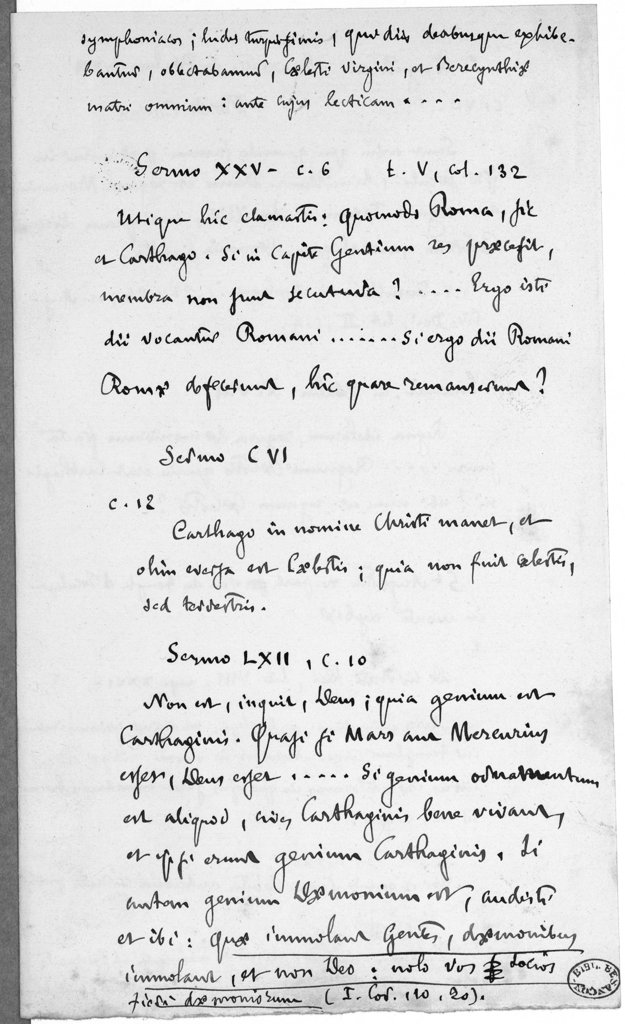 symphoniacos ; ludos turpissimos, qui diis deabusque exhibe-
bantur, oblectabamur, Cælesti Virgini, et Berecynthiæ
matri omnium : ante cujus lecticam . . . .
Sermo XXV - c. 6 t. V, col. 132
Utique hic clamastis : quomodo Roma, sic
et Carthago. Si in Capite Gentium res præcessit,
membra non sunt secutura ? .... Ergo isti
dii vocantur Romani ....... Si ergo dii Romani
Romæ defecerunt, hîc quare remanserunt ?
Sermo CVI
c. 12
Carthago in nomine Christi manet, et
olim eversa est Cælestis ; quia non fuit cælestis,
sed terrestris.
Sermo LXII, c. 10
Non est, inquit, Deus ; quia genium est
Carthaginis. Quasi si Mars aut Mercurius
esset, Deus esset ..... Si genium ornamentum
est aliquod, cives Carthaginis bene vivant,
et ipsi erunt genium Carthaginis. Si
autem genium Dæmonium est, audisti
et ibi : Quæ immolant Gentes, dæmonibus
immolant, et non Deo : nolo vos socios
fieri dæmoniorum (I. Cor. 10, 20).
BIBL. BESANÇON